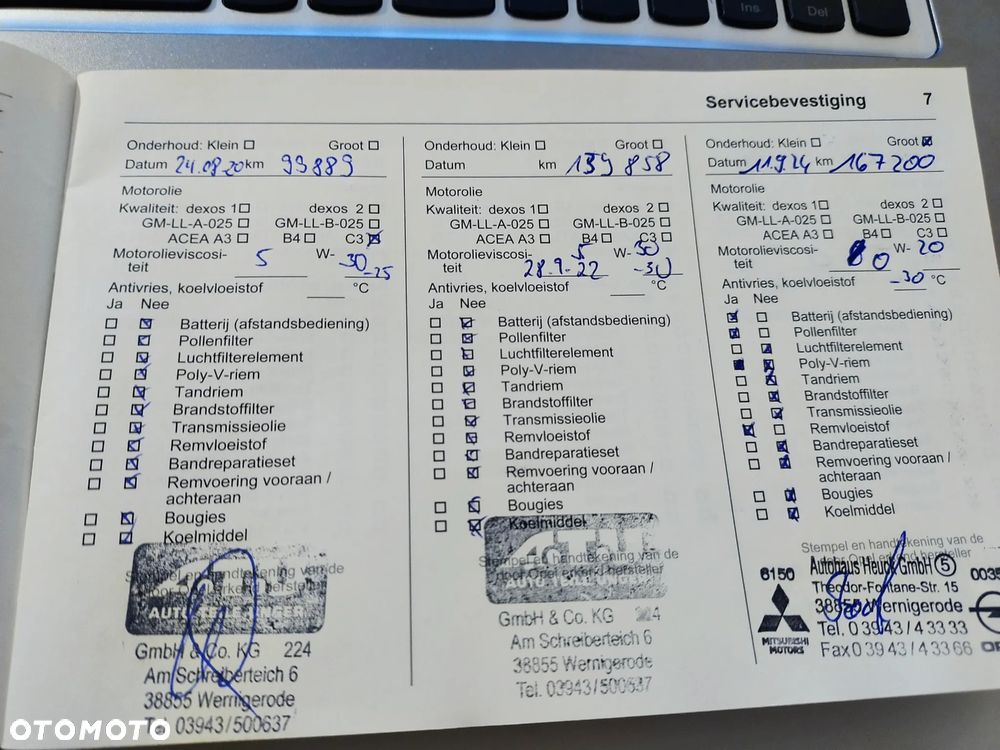 Ins
Del
Servicebevestiging 7
Onderhoud: Klein Groot
Datum 24.08.20 km 99889
Motorolie
Kwaliteit: dexos 1 dexos 2
GM-LL-A-025 GM-LL-B-025
ACEA A3 B4 C3
Motorolieviscosi-
teit 5 W- 30
-25
Antivries, koelvloeistof °C
Ja Nee
Batterij (afstandsbediening)
Pollenfilter
Luchtfilterelement
Poly-V-riem
Tandriem
Brandstoffilter
Transmissieolie
Remvloeistof
Bandreparatieset
Remvoering vooraan /
achteraan
Bougies
Koelmiddel
Stempel en handtekening van de
door Opel erkend hersteller
GmbH & Co. KG 224
Am Schreiberteich 6
38855 Wernigerode
Tel. 03943/500637
Onderhoud: Klein Groot
Datum km 139 858
Motorolie
Kwaliteit: dexos 1 dexos 2
GM-LL-A-025 GM-LL-B-025
ACEA A3 B4 C3
Motorolieviscosi- 5 W- 30
teit 28.9.22 -30
Antivries, koelvloeistof °C
Ja Nee
Batterij (afstandsbediening)
Pollenfilter
Luchtfilterelement
Poly-V-riem
Tandriem
Brandstoffilter
Transmissieolie
Remvloeistof
Bandreparatieset
Remvoering vooraan /
achteraan
Bougies
Koelmiddel
Stempel en handtekening van de
door Opel erkend hersteller
GmbH & Co. KG 224
Am Schreiberteich 6
38855 Wernigerode
Tel. 03943/500637
Onderhoud: Klein Groot
Datum 11.9.24 km 167200
Motorolie
Kwaliteit: dexos 1 dexos 2
GM-LL-A-025 GM-LL-B-025
ACEA A3 B4 C3
Motorolieviscosi-
teit 0 W- 20
Antivries, koelvloeistof -30 °C
Ja Nee
Batterij (afstandsbediening)
Pollenfilter
Luchtfilterelement
Poly-V-riem
Tandriem
Brandstoffilter
Transmissieolie
Remvloeistof
Bandreparatieset
Remvoering vooraan /
achteraan
Bougies
Koelmiddel
Stempel en handtekening van de
door Opel erkend hersteller
Autohaus Heuck GmbH 5
6150 Theodor-Fontane-Str. 15 0035
38855 Wernigerode
MITSUBISHI
MOTORS
Tel. 0 39 43 / 4 33 33
Fax 0 39 43 / 4 33 66
OTOMOTO